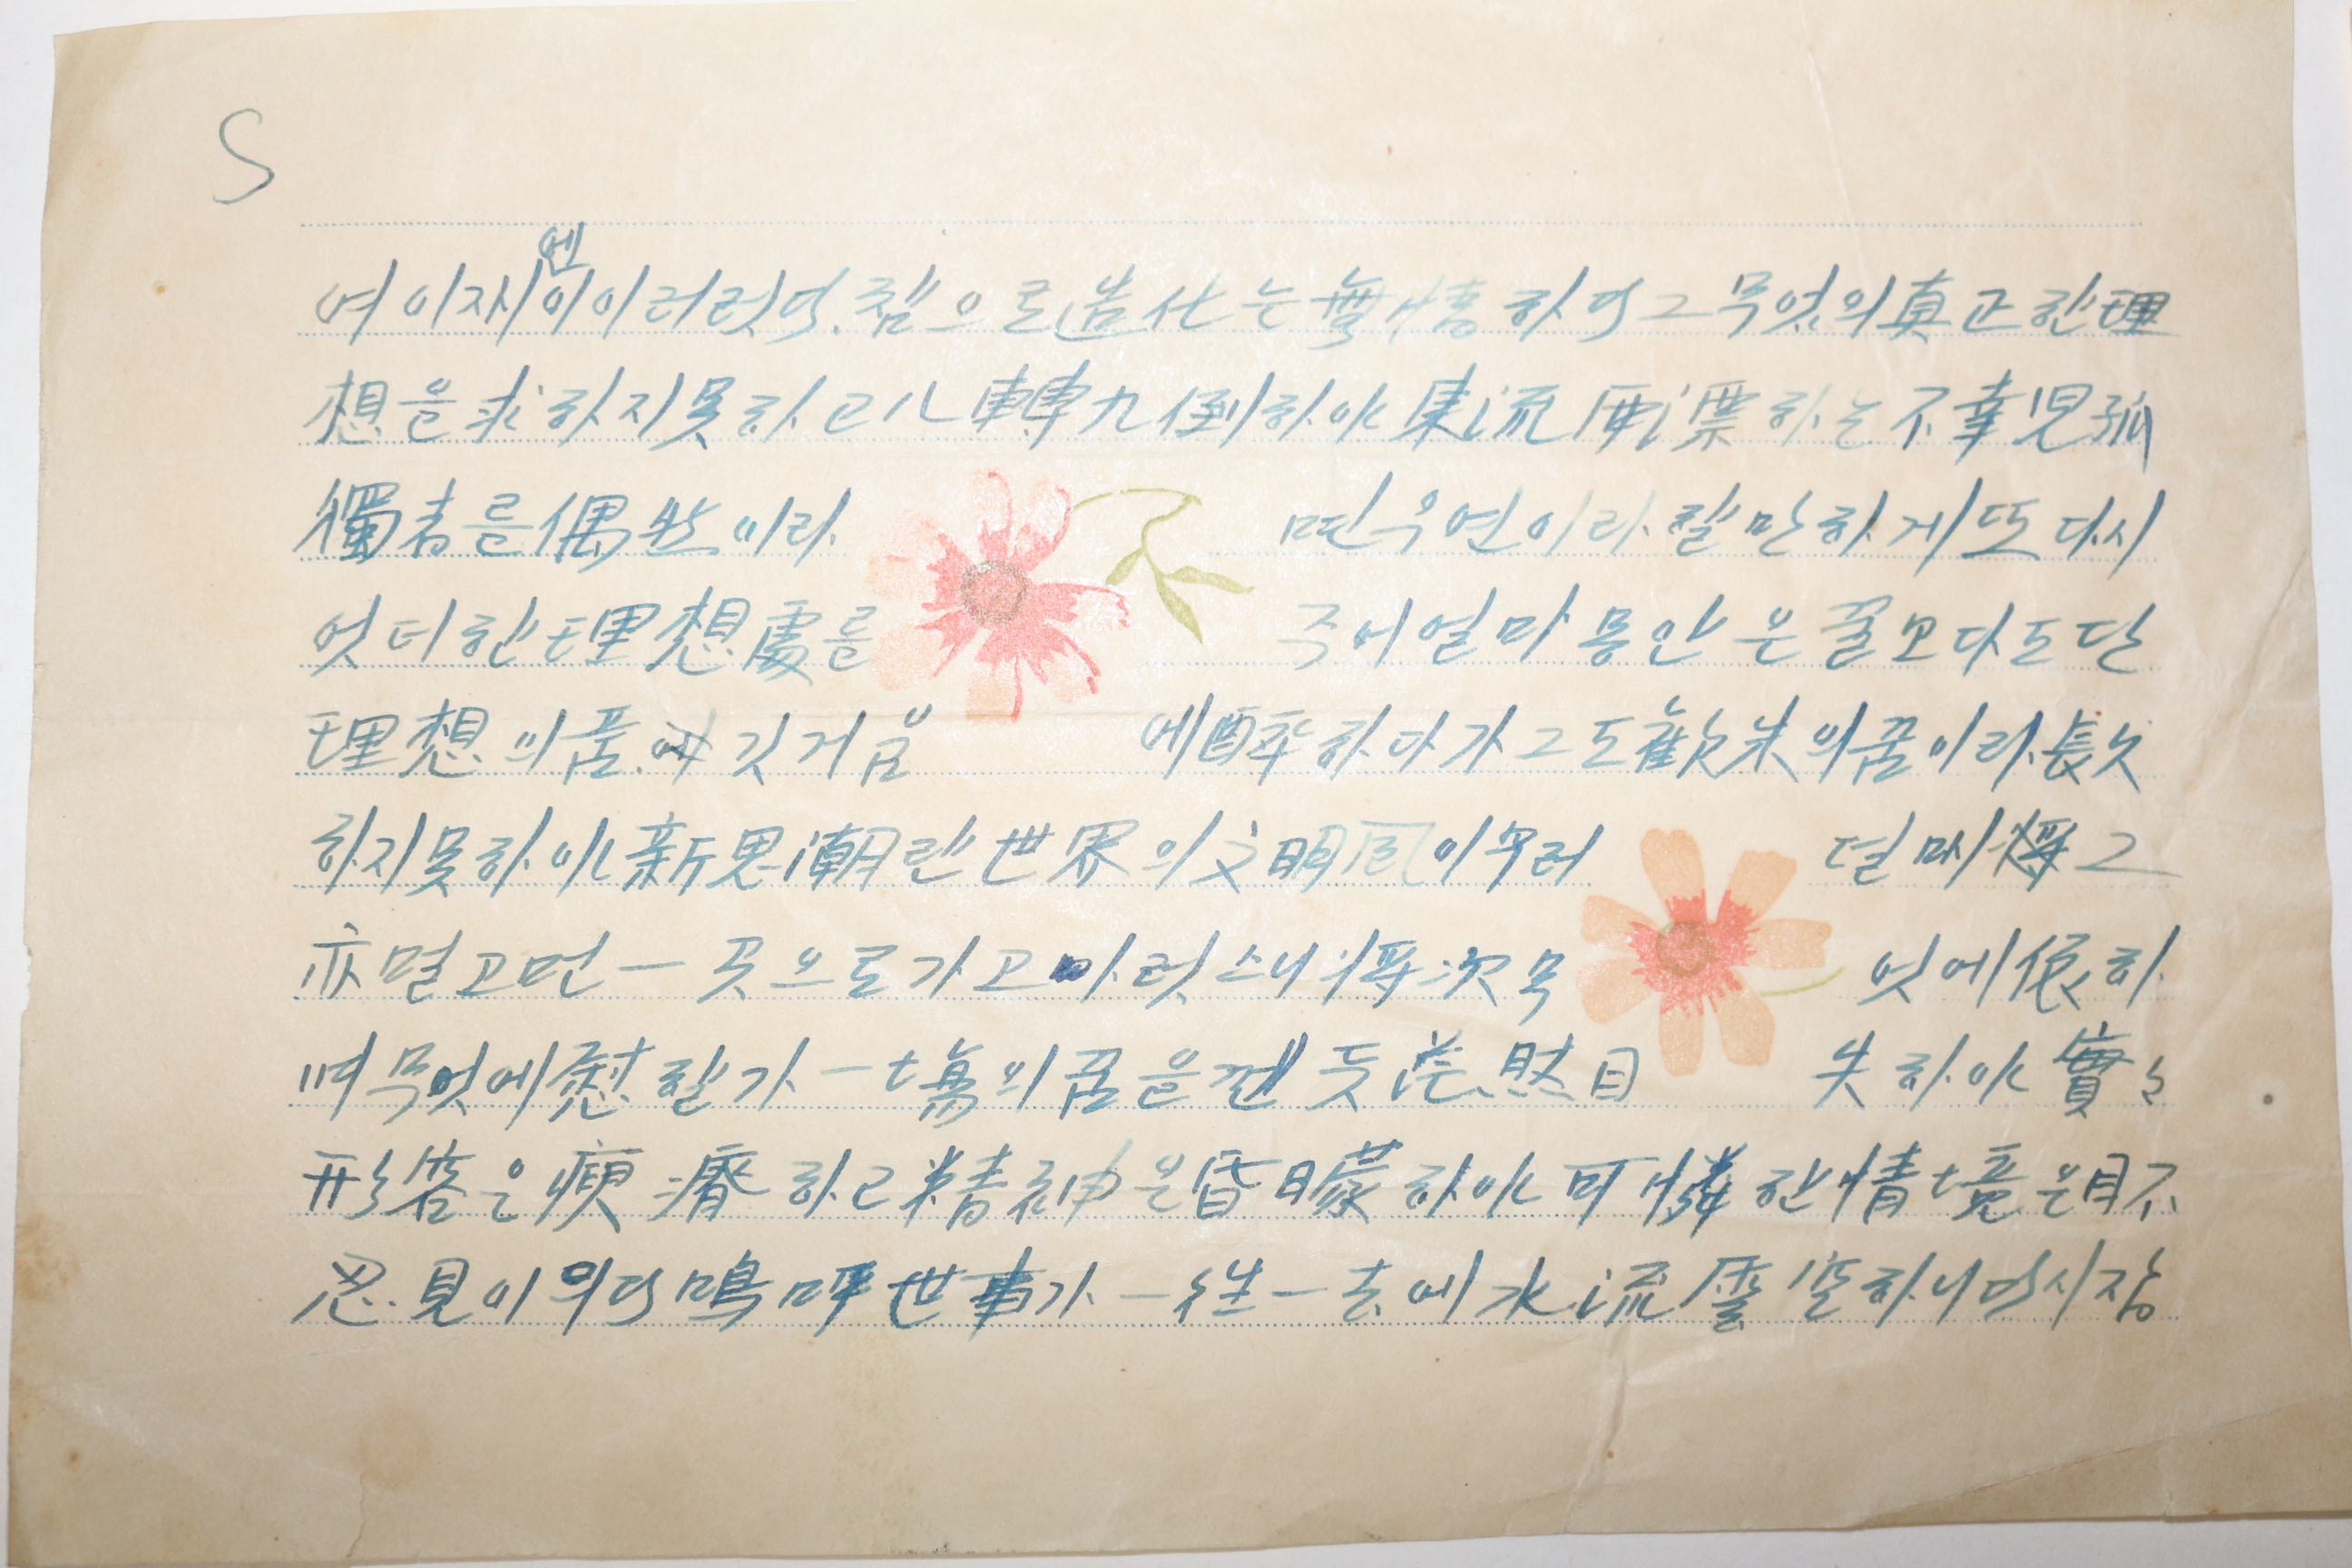 S
엔
여이재이이러럿다. 참으로造化는無情하다그무엇의真正한理
想을求하지못하고八轉九倒하야東流西漂하는不幸児孤
獨者를偶然이라 면우연이라할만하게또다시
엇더한理想處를 주어얼마동안은꿀보다도단
理想의품에깃거움 에醉하다가그도歡未의꿈이라長久
하지못하야新思潮란世界의文明風이우리 덜매將그
亦멀고먼一곳으로가고마럿스니將次무 엇에依하
며무엇에慰할가一場의꿈을깬듯茫然自 失하야實로
形容은瘐瘠하고精神은昏曚하야可憐한情境은目不
忍見이외다嗚呼世事가一往一去에水流雲空하니다시잠